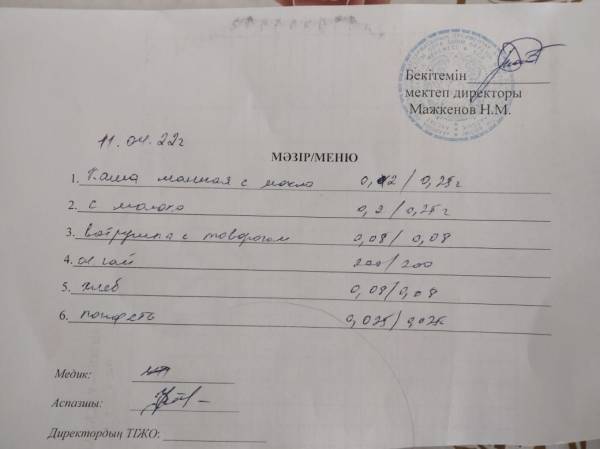 Бекітемін
мектеп директоры
Мажкенов Н.М.
11.04.22г
МӘЗІР/МЕНЮ
1. Каша манная с масло 0,2 / 0,25г
2. с молоко 0,2 / 0,25г
3. ватрушка с творогом 0,08 / 0,08
4. чай 200/200
5. хлеб 0,08/0,08
6. 0,025/0,025
Медик:
Аспазшы:
Директордың ТІЖО: